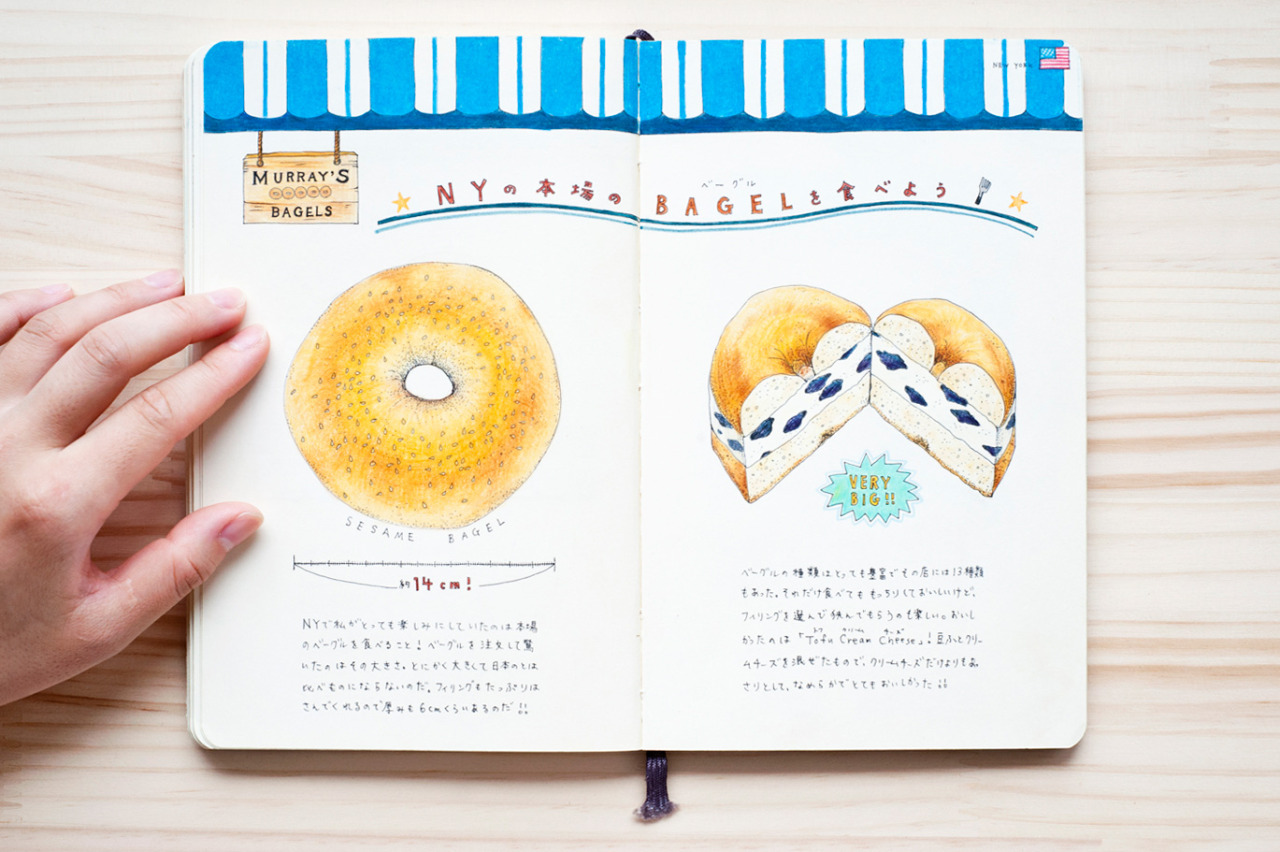 NEW YORK
MURRAY'S
BAGELS
ベーグル
NYの本場のBAGELを食べよう
SESAME BAGEL
約14cm!
NYで私がとっても楽しみにしていたのは本場
のベーグルを食べること!ベーグルを注文して驚
いたのはその大きさ。とにかく大きくて日本のとは
比べものにならないのだ。フィリングもたっぷりは
さんでくれるので厚みも6cmくらいあるのだ!!
VERY
BIG!!
ベーグルの種類はとっても豊富でその店には13種類
もあった。それだけ食べてももっちりしておいしいけど、
フィリングを選んで挟んでもらうのも楽しい。おいし
トフ クリーム チーズ
かったのは「Tofu Cream Cheese」!豆ふとクリー
ムチーズを混ぜたもので、クリームチーズだけよりもあ
さりとして、なめらかでとてもおいしかった!!